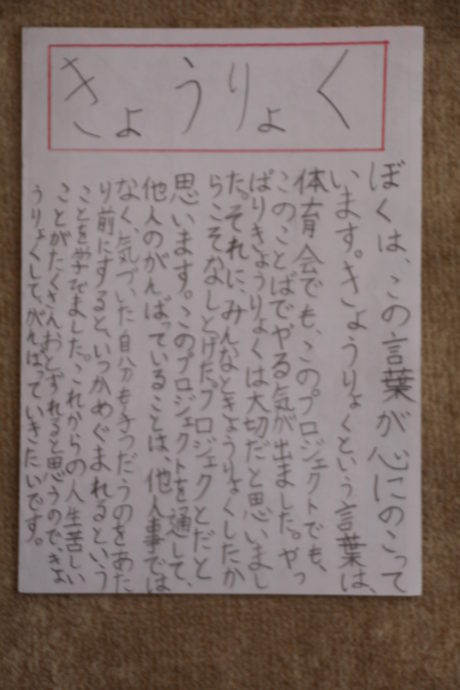 きょうりょく
ぼくは、この言葉が心にのこって
います。きょうりょくという言葉は、
体育会でも、このプロジェクトでも、
このことばでやる気が出ました。やっ
ぱりきょうりょくは大切だと思いまし
た。それに、みんなときょうりょくしたか
らこそなしとげたプロジェクとだと
思います。このプロジェクトを通して、
他人のがんばっていることは、他人事では
なく、気づいた自分も手つだうのをあた
り前にするといつかめぐまれるという
ことを学びました。これからの人生苦しい
ことがたくさんおとずれると思うので、きょ
うりょくして、がんばっていきたいです。